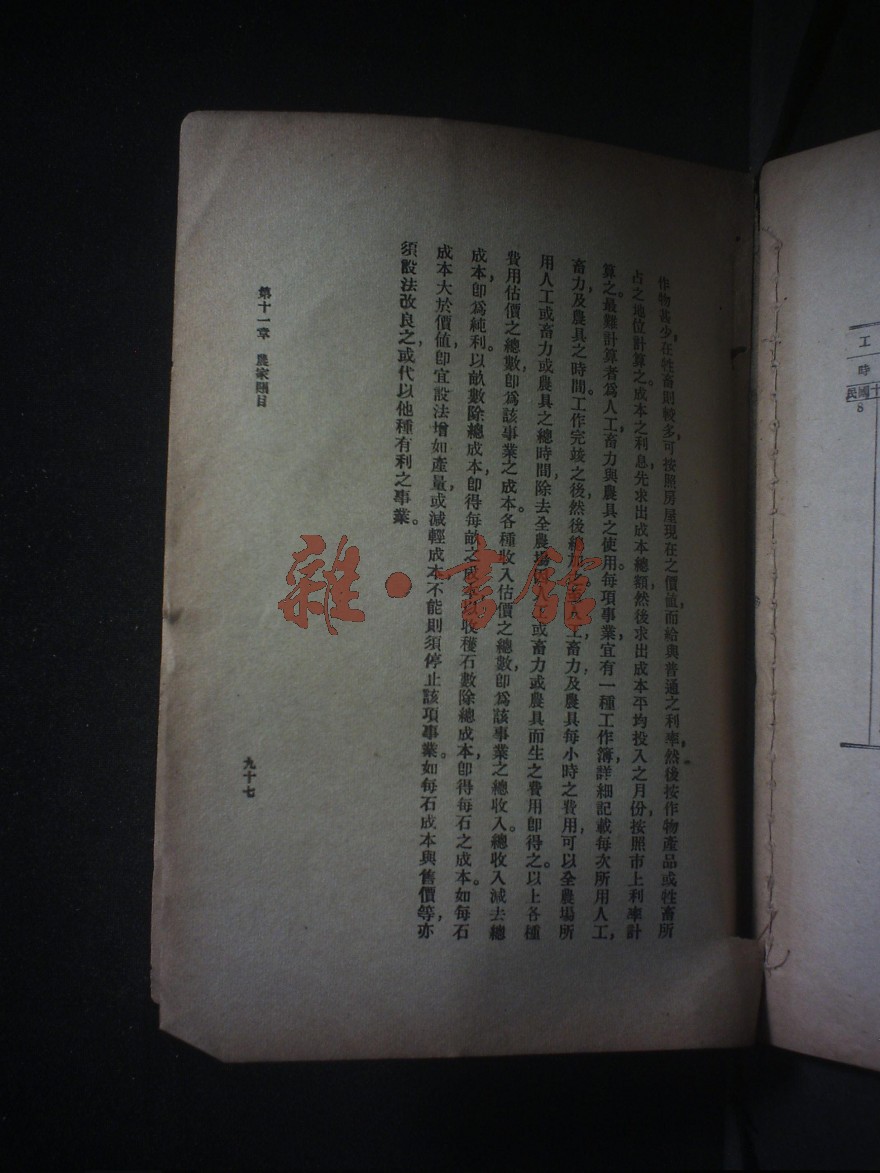 作物甚少，在牲畜則較多，可按照房屋現在之價値，而給與普通之利率，然後按作物產品或牲畜所
占之地位計算之。成本之利息，先求出成本總額，然後求出成本平均投入之月份，按照市上利率計
算之。最難計算者，爲人工畜力與農具之使用。每項事業，宜有一種工作簿，詳細記載每次所用人工，
畜力，及農具之時間。工作完竣之後，然後總加之。人工，畜力，及農具每小時之費用，可以全農場所
用人工或畜力或農具之總時間，除去全農場人工或畜力或農具而生之費用，卽得之。以上各種
費用估價之總數，卽爲該事業之成本。各種收入估價之總數，卽爲該事業之總收入。總收入減去總
成本，卽爲純利。以畝數除總成本，卽得每畝之成本。以收穫石數除總成本，卽得每石之成本。如每石
成本大於價値，卽宜設法增如產量，或減輕成本，不能則須停止該項事業。如每石成本與售價等，亦
須設法改良之，或代以他種有利之事業。
第十一章 農家賬目
九十七
雜·書館
工
時
民國十
8